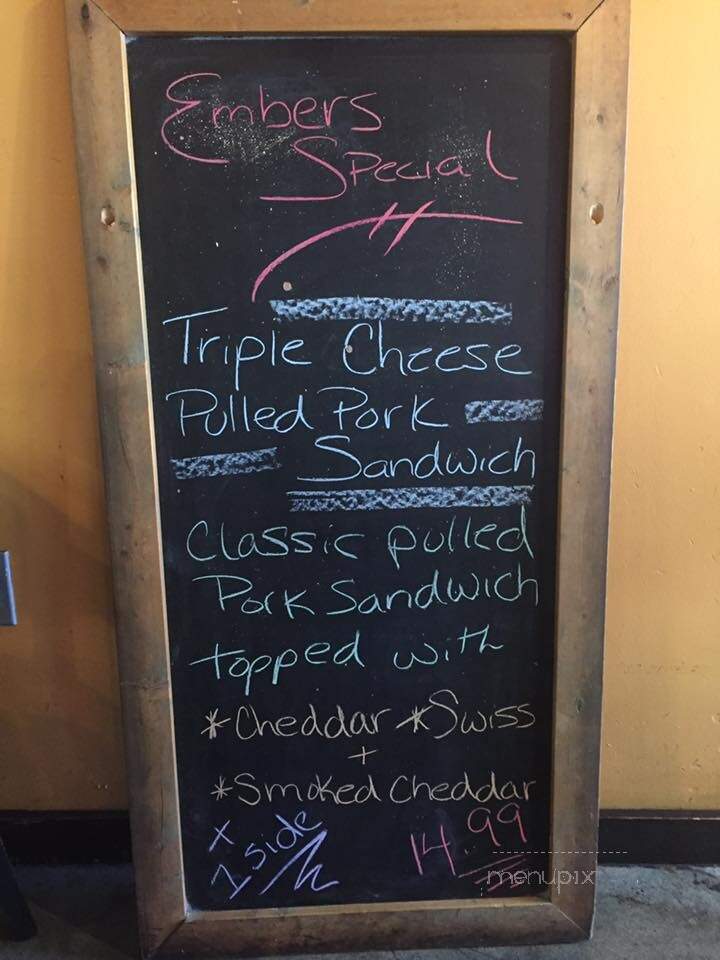 Embers
Special
Triple Cheese
Pulled Pork
Sandwich
Classic pulled
Pork Sandwich
topped with
*Cheddar *Swiss
+
*Smoked Cheddar
+
1 side
14.99
menupix